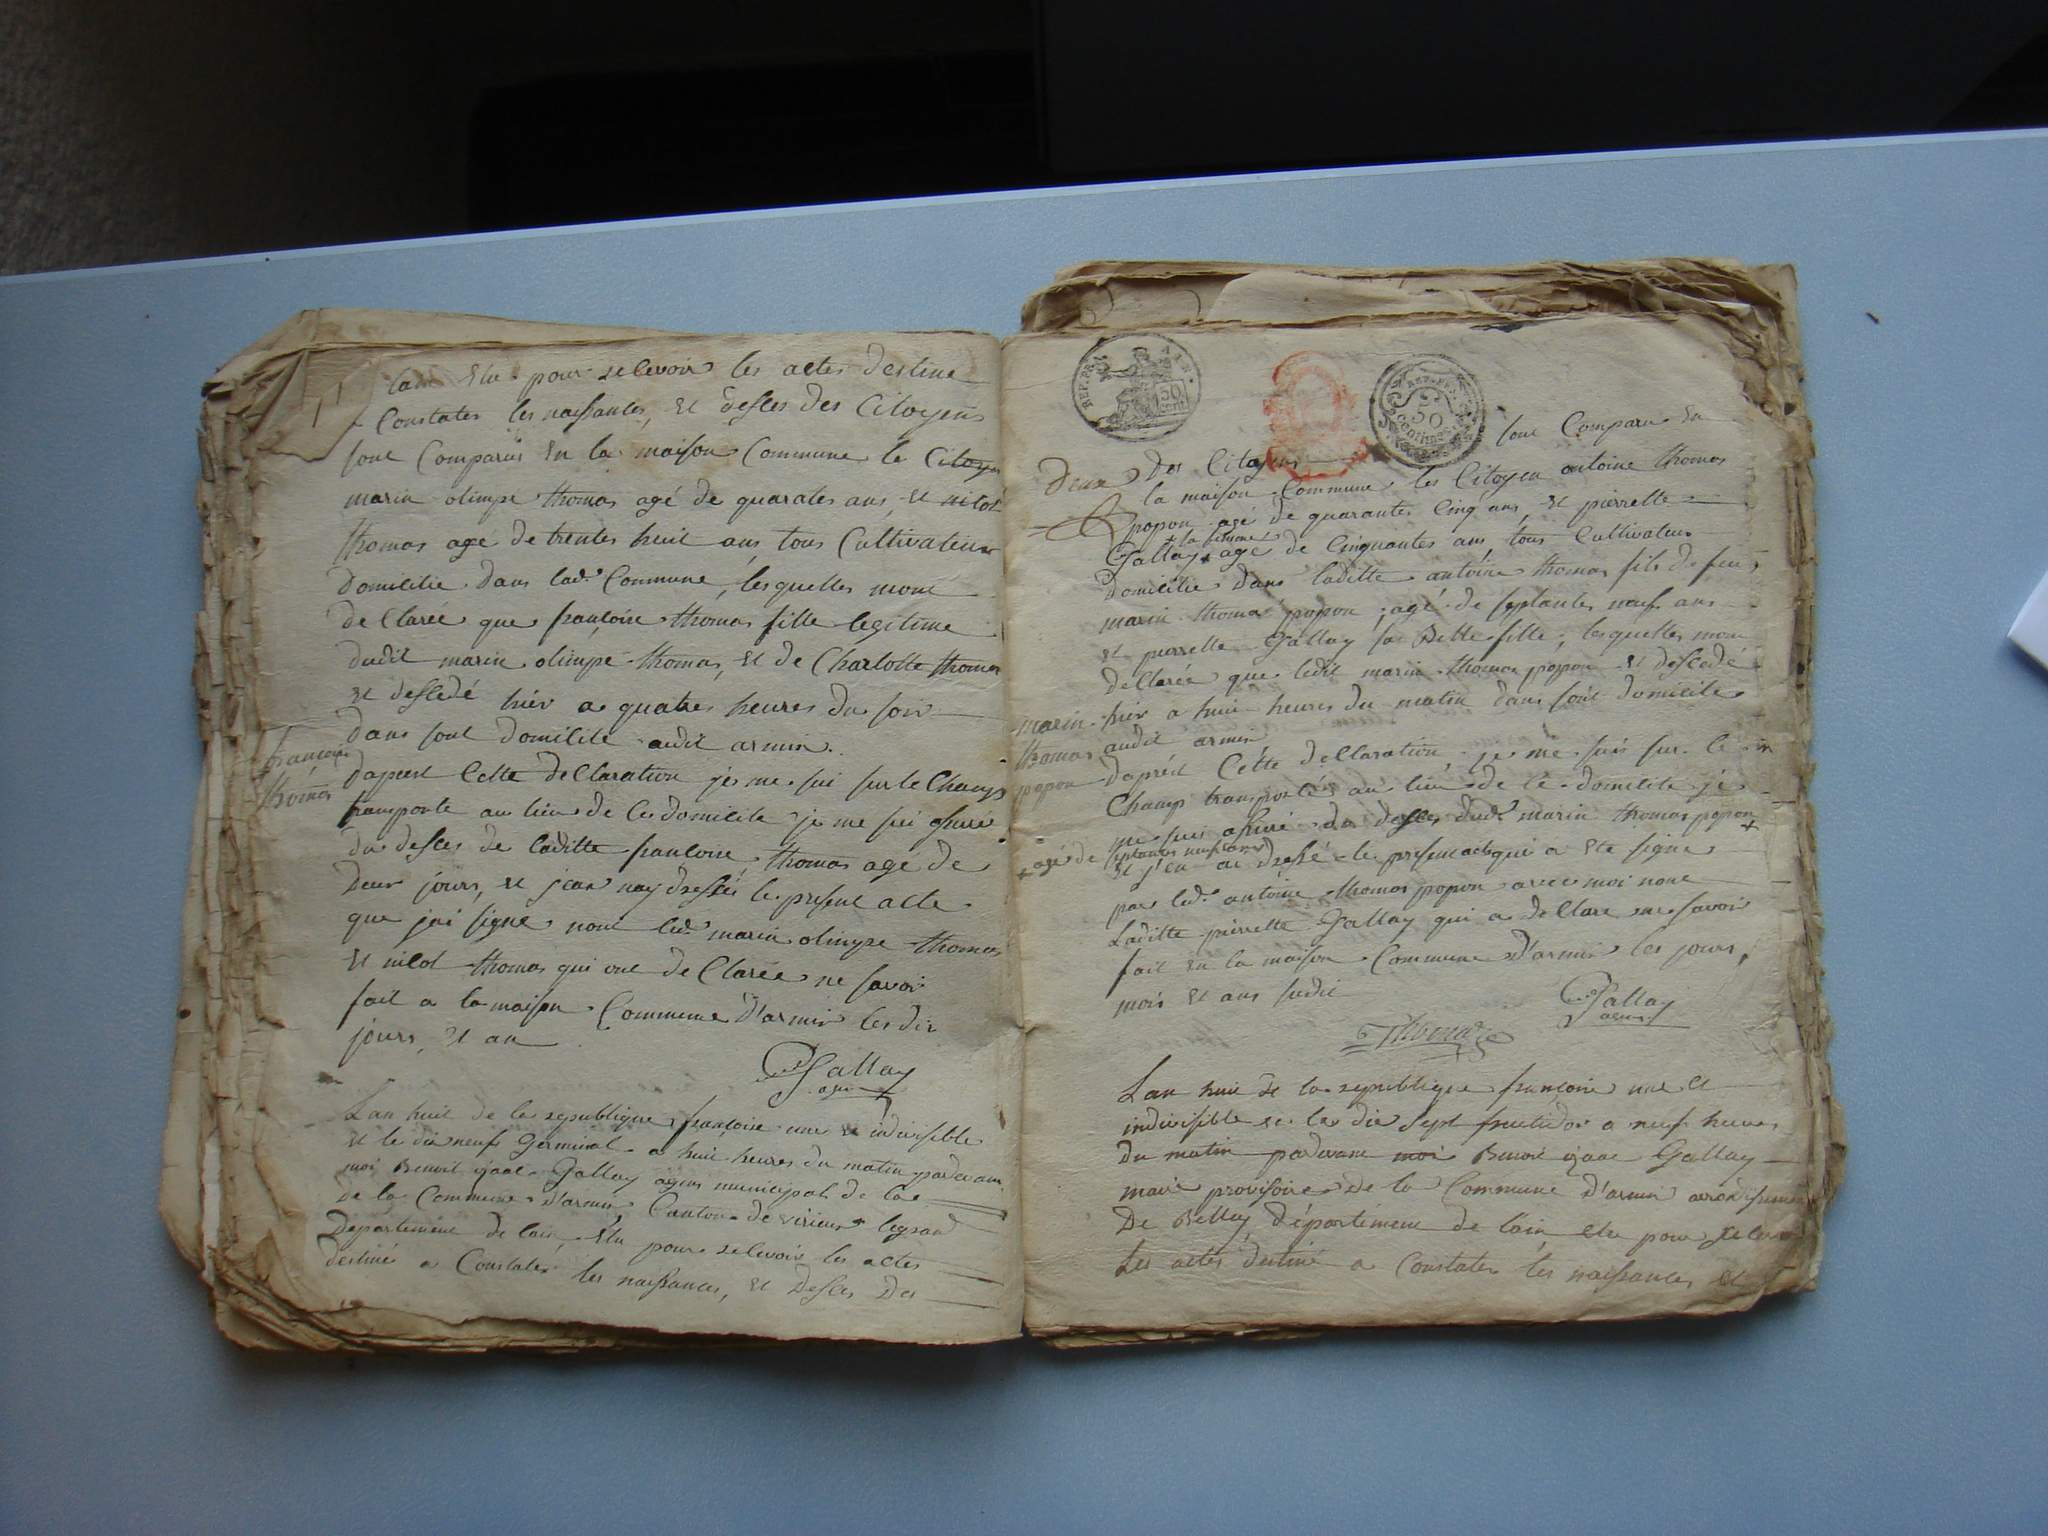 lain Elu pour recevoir les actes destine
a Constates les naissances, et desces des Citoyens
sont Comparus En la maison Commune le Citoyen
marin olimpe thomas agé de quarates ans, et nicot
thomas agé de trentes huit ans, tous Cultivateur
domicilie dans lad.e Commune, lesquelles mont
declarée que françoise thomas fille legitime
dudit marin olimpe thomas, et de Charlotte thomas
et descedé hier a quatres heures du soir
dans sont domicile audit armin.
françoise
thomas
dapres Cette declaration je me sui sur le Champ
transporte au lieu de ce domicile je me sui assuré
du desces de laditte francoise thomas agé de
deux jours, et jean nay dressés le present acte
que jai signe nont led.t marin olimpe thomas
et nicot thomas qui ont declarée ne savoir
fait a la maison Commune d'armin les dit
jours, et an
Gallay
agent
Lan huit de la republique françoise une et indivisible
et le dix neuf germinal a huit heures du matin pardevant
moi Benoit Gallay agens municipal de la
de la Commune d'armin Canton de virieux legrand
Departement de lain, Elu pour recevoir les actes
destiné a Constater les naissances, et desces des
REP. FR.
50
REP. FR.
50
centimes
deux des Citoyens sont Comparu En
la maison Commune les Citoyen antoine thomas
popon agé de quarantes Cinq ans, et pierrette
Gallay + sa femme agé de Cinquantes ans, tous Cultivateur
domicilie dans laditte antoine thomas fils de feu
marin thomas popon, agé de septantes neuf ans
et pierrette Gallay sa Belle fille, lesquelles mon
declarée que ledit marin thomas popon et descedé
hier a huit heures du matin dans sont domicile
audit armin
marin
thomas
popon
daprés Cette declaration, je me suis sur le
Champ transportés au lieu de ce domicile je
me suis assuré du desces dud.t marin thomas popon +
+ agé de septantes neuf ans
et j'en ai dressé le present acte qui a ete signe
par led.t antoine thomas popon avec moi nont
Laditte pierrette Gallay qui a declare ne savoir
fait En la maison Commune d'armin les jours,
mois et ans sudit
Gallay
agent
Thomas
Lan huit de la republique françoise une et
indivisible et le dix sept fructidor a neuf heures
du matin pardevant moi Benoit Gallay
maire provisoire de la Commune d'armin arrondissement
De Belley, département de lain, elu pour recevoir
Les actes destiné a Constater les naissances et